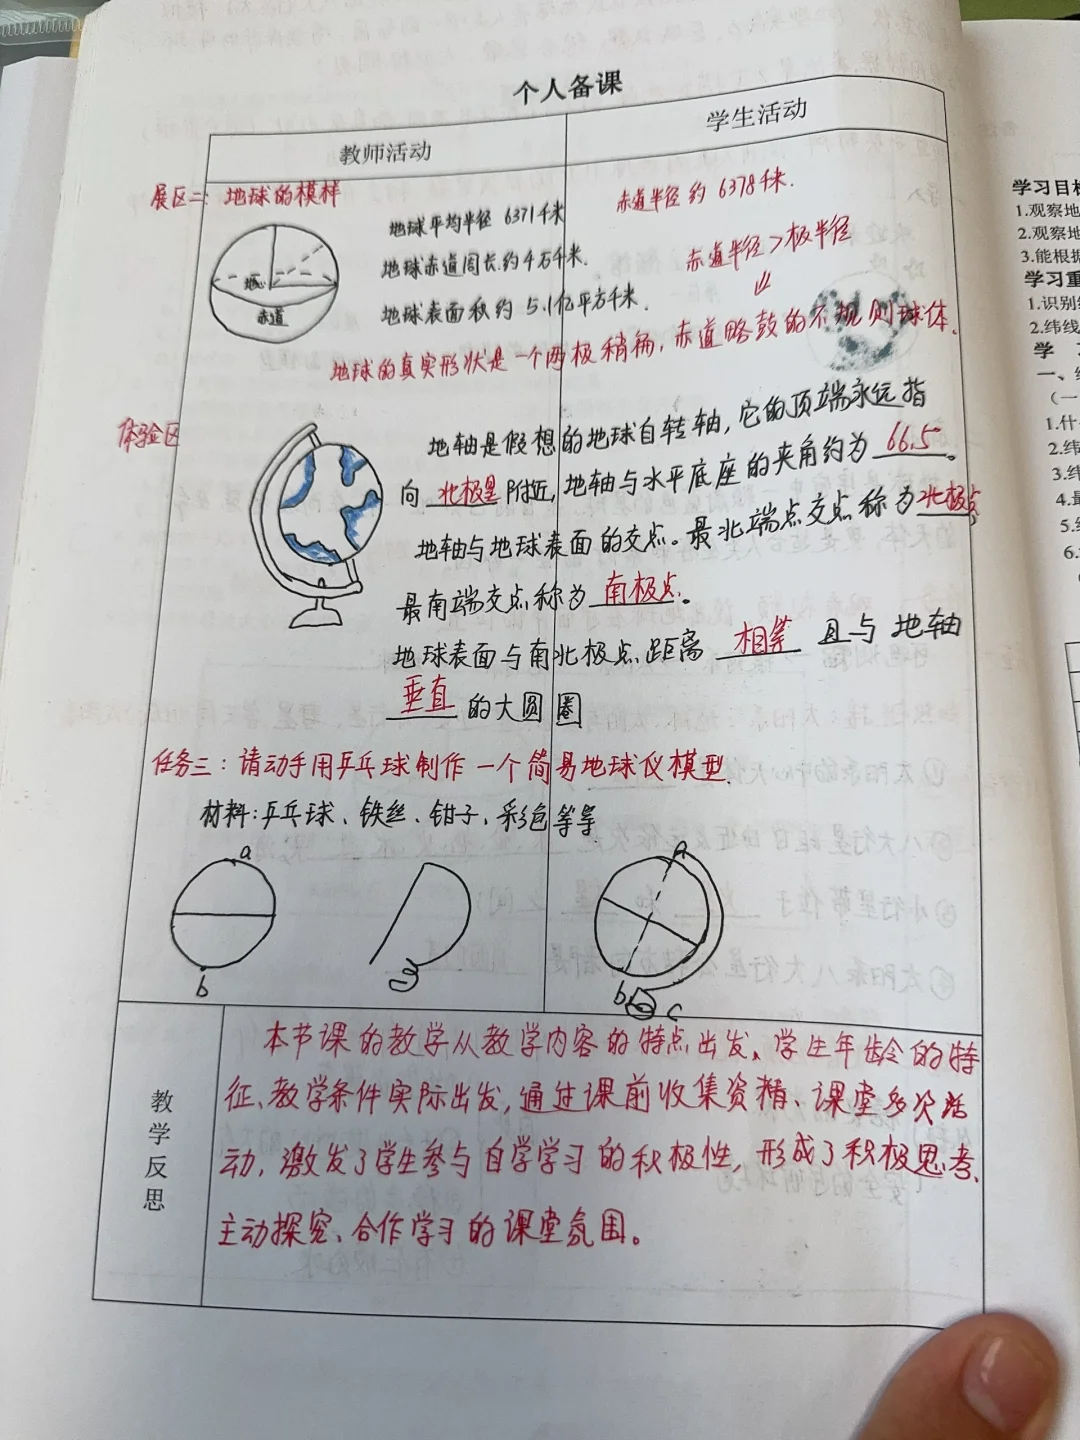 个人备课
教师活动
学生活动
展区二：地球的模样
地心
赤道
地球平均半径 6371千米
地球赤道周长约4万千米.
地球表面积约 5.1亿平方千米.
赤道半径约 6378千米.
赤道半径>极半径
⇓
地球的真实形状是一个两极稍扁，赤道略鼓的不规则球体.
体验区
地轴是假想的地球自转轴，它的顶端永远指
向 北极星 附近，地轴与水平底座的夹角约为 66.5 。
地轴与地球表面的交点。最北端点交点称为 北极点
最南端交点称为 南极点 。
地球表面与南北极点距离 相等 且与 地轴
垂直 的大圆圈
任务三：请动手用乒乓球制作一个简易地球仪模型.
材料：乒乓球、铁丝、钳子、彩色等等
a
b
a
b
c
教学反思
本节课的教学从教学内容的特点出发、学生年龄的特
征、教学条件实际出发，通过课前收集资精、课堂多次活
动，激发了学生参与自学学习的积极性，形成了积极思考、
主动探究、合作学习的课堂氛围。
学习目标
1.观察地
2.观察地
3.能根据
学习重
1.识别经
2.纬线
学
一、
（一
1.什
2.纬
3.纬
4.最
5.经
6.